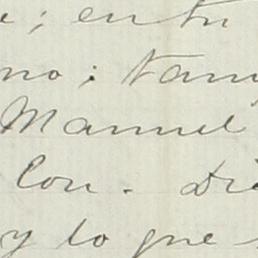 ; en tu
no ; tam
Manuel
Con. Di
y lo que